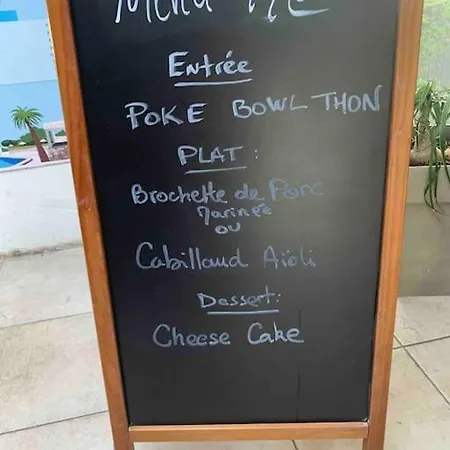 Menu
Entrée
POKE BOWL THON
PLAT :
Brochette de Porc
Marinée
ou
Cabillaud Aïoli
Dessert :
Cheese Cake